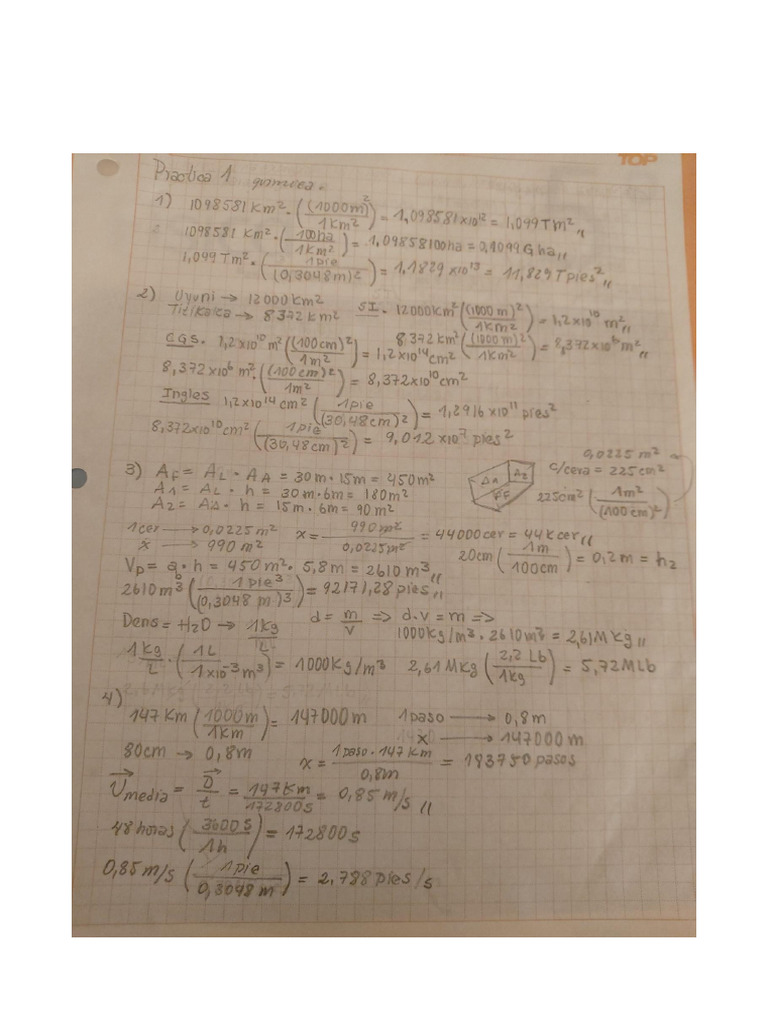 TOP
Practica 1 quimica.
1) 1098581 Km². ((1000m)²/1Km²) = 1,098581x10¹² = 1,099Tm²,,
1098581 Km². (100ha/1Km²) = 1,09858100ha = 0,1099Gha,,
1,099Tm². (1pie/(0,3048m)²) = 1,1829x10¹³ = 11,829Tpies²,,
2) Uyuni → 12000Km² SI. 12000Km²((1000m)²/1Km²) = 1,2x10¹⁰m²,,
Titikaca → 8372 Km² 8372Km²((1000m)²/1Km²) = 8,372x10⁶m²,,
CGS. 1,2x10¹⁰m²((100cm)²/1m²) = 1,2x10¹⁴cm²
8,372x10⁶m².((100cm)²/1m²) = 8,372x10¹⁰cm²
Ingles 1,2x10¹⁴cm² (1pie/(30,48cm)²) = 1,2916x10¹¹pies²
8,372x10¹⁰cm² (1pie/(30,48cm)²) = 9,012x10⁷pies²
3) AF = AL . AA = 30m.15m = 450m²
A1 = AL . h = 30m.6m = 180m²
A2 = AA . h = 15m.6m = 90m²
A1 A2 FF
0,0225m²
c/cera = 225cm²
225cm² (1m²/(100cm)²)
1cer → 0,0225m² x = 990m²/0,0225m² = 44000cer = 44Kcer,,
x → 990m²
20cm (1m/100cm) = 0,2m = h₂
Vp = a.h = 450m². 5,8m = 2610m³,,
b
2610m³ (1pie³/(0,3048m)³) = 92171,28pies,,
Dens = H2O → 1Kg/1L d = m/v => d.v = m =>
1000Kg/m³. 2610m³ = 2,61MKg,,
1Kg/L . (1L/1x10⁻³m³) = 1000Kg/m³ 2,61MKg (2,2Lb/1Kg) = 5,72MLb
4)
147Km (1000m/1Km) = 147000m 1paso → 0,8m
x → 147000m
80cm → 0,8m x = 1paso.147Km/0,8m = 183750pasos
Vmedia = D/t = 147Km/172800s = 0,85m/s,,
48horas (3600s/1h) = 172800s
0,85m/s (1pie/0,3048m) = 2,788pies/s